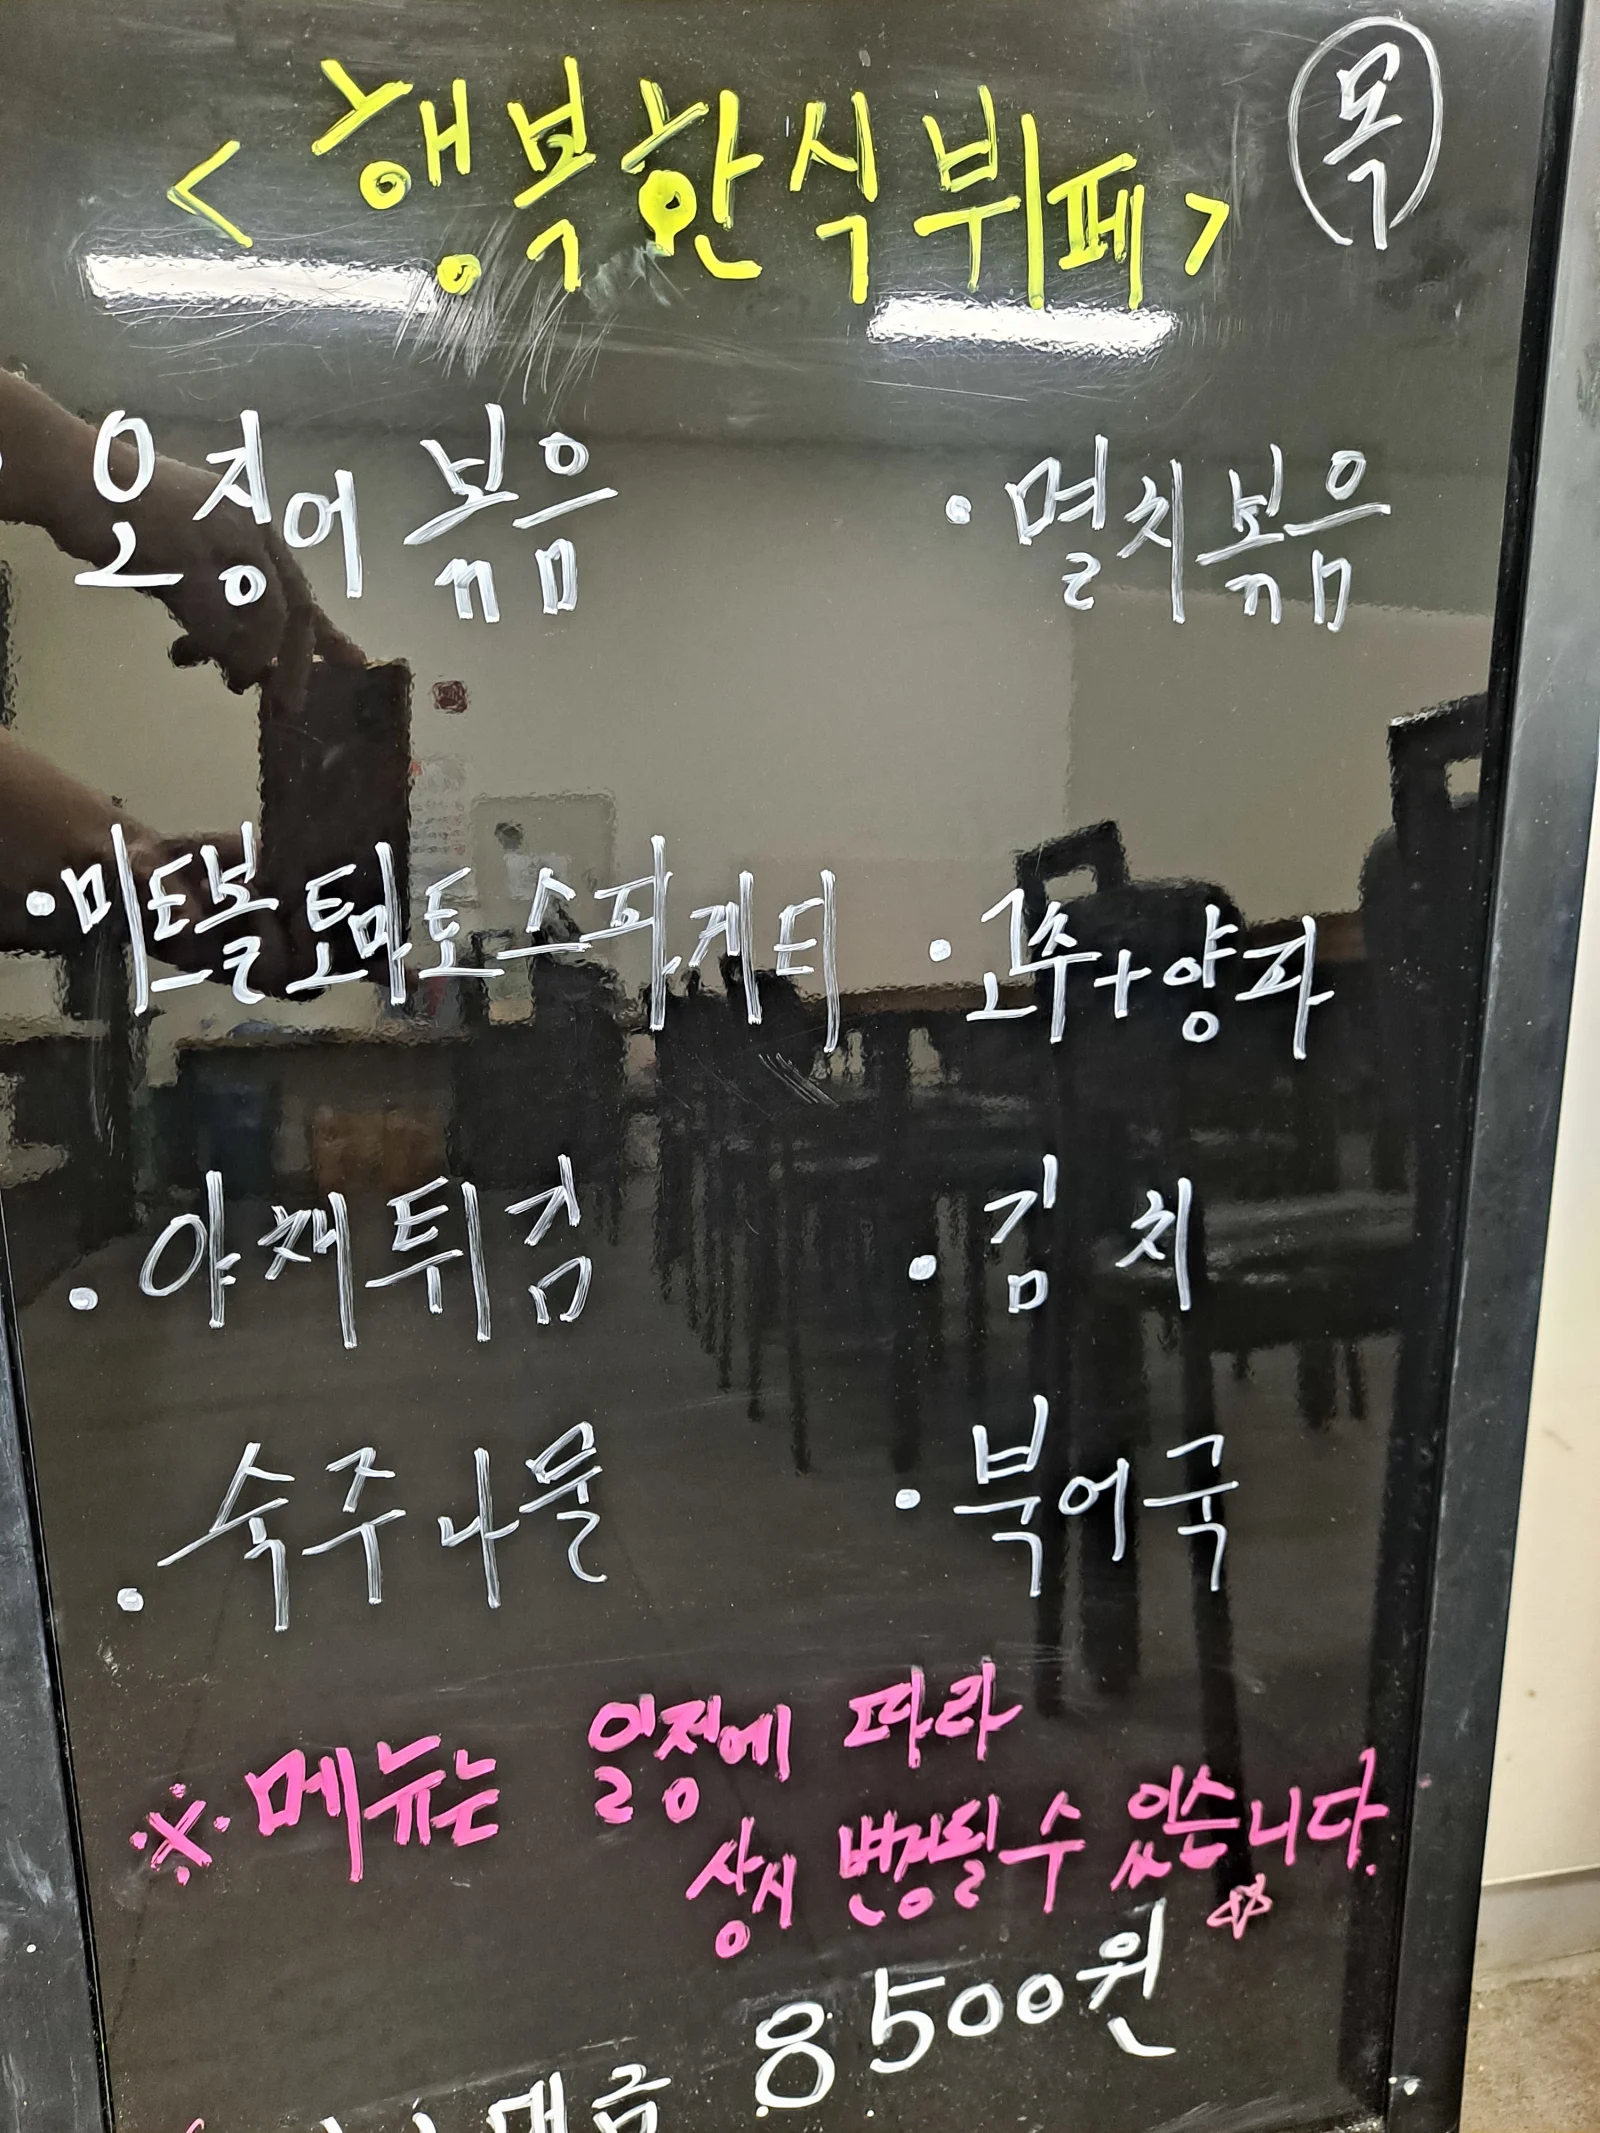 <행복한식뷔페> 목
오징어 볶음
· 멸치볶음
· 미트볼토마토스파게티
· 고추+양파
· 야채튀김
· 김 치
· 숙주나물
· 북어국
※ 메뉴는 일정에 따라
상시 변경될 수 있습니다.☆
8500원